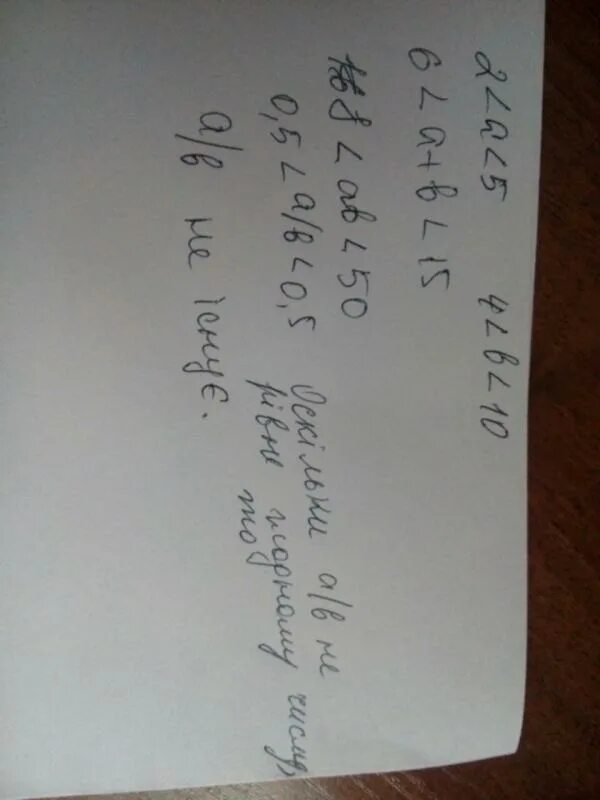 2<a<5 4<в<10
6<а+в<15
8<ав<50
0,5<а/в<0,5 Оскільки а/в не
рівне жодному числу,
то
а/в не існує.